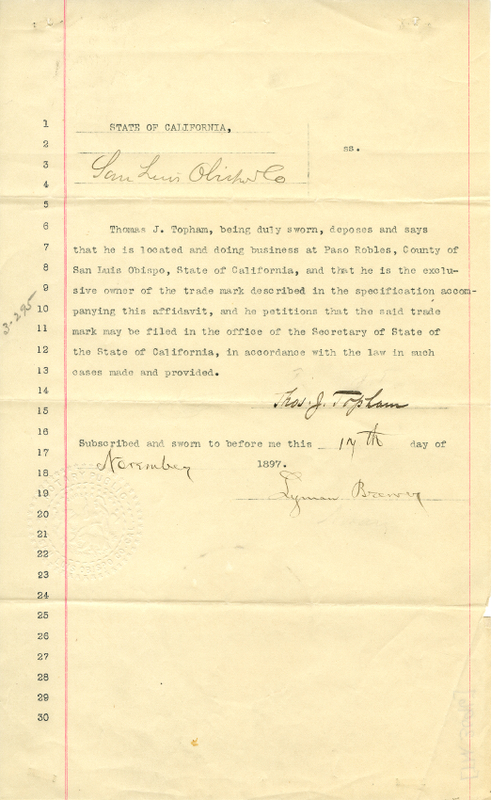 1 STATE OF CALIFORNIA,
2 ss.
3 San Luis Obispo Co
4
5
6 Thomas J. Topham, being duly sworn, deposes and says
7 that he is located and doing business at Paso Robles, County of
8 San Luis Obispo, State of California, and that he is the exclu-
9 sive owner of the trade mark described in the specification accom-
10 panying this affidavit, and he petitions that the said trade
11 mark may be filed in the office of the Secretary of State of
12 the State of California, in accordance with the law in such
13 cases made and provided.
14 Thos. J. Topham
15
16 Subscribed and sworn to before me this 17th day of
17 November 1897.
18
19 Lyman Brewer
20
21
22
23
24
25
26
27
28
29
30
3-295